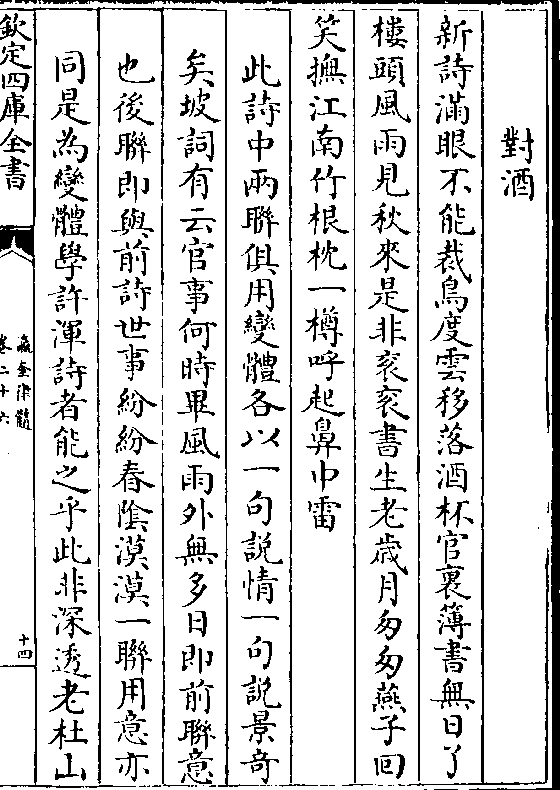 對酒
新詩滿眼不能裁鳥度雲移落酒杯官裏簿書無日了
樓頭風雨見秋來是非衮衮書生老歲月匆匆燕子回
笑撫江南竹根枕一樽呼起鼻中雷
此詩中兩聯俱用變體各以一句說情一句說景奇
矣坡詞有云官事何時畢風雨外無多日即前聯意
也後聯即與前詩世事紛紛春隂漠漠一聯用意亦
同是為變體學許渾詩者能之乎此非深透老杜山
欽定四庫全書
瀛奎律髓
卷二十六
十四